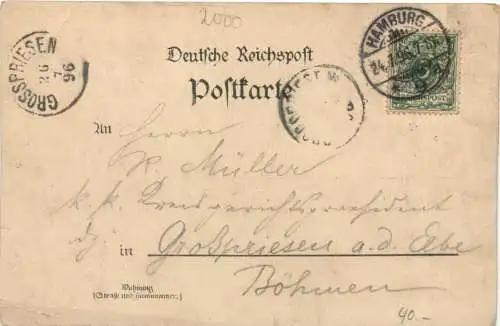 2000
GROSSPRIESEN
26
7
96
HAMBURG
Deutsche Reichspost
Postkarte
An Herrn
K. Müller
k. k. Kreisgerichtspraesident
in Grosspriesen a. d. Elbe
Böhmen
Wohnung
(Straße und Hausnummer.)
40.-